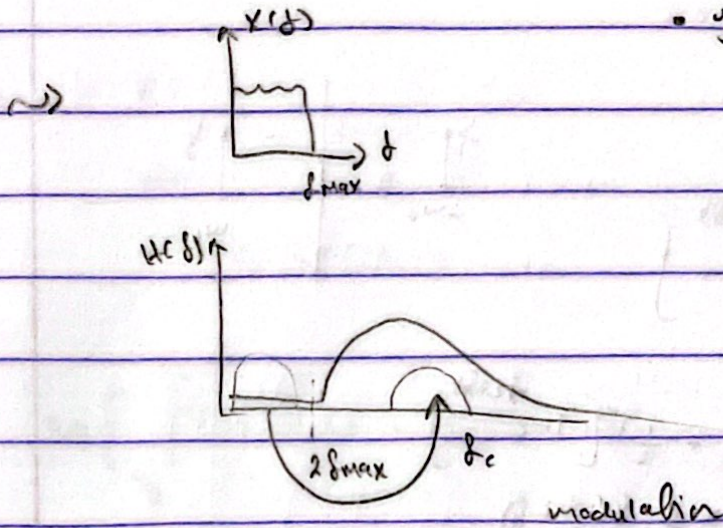 X(f)
f
fmax
H(f)
2fmax
fc
modulation